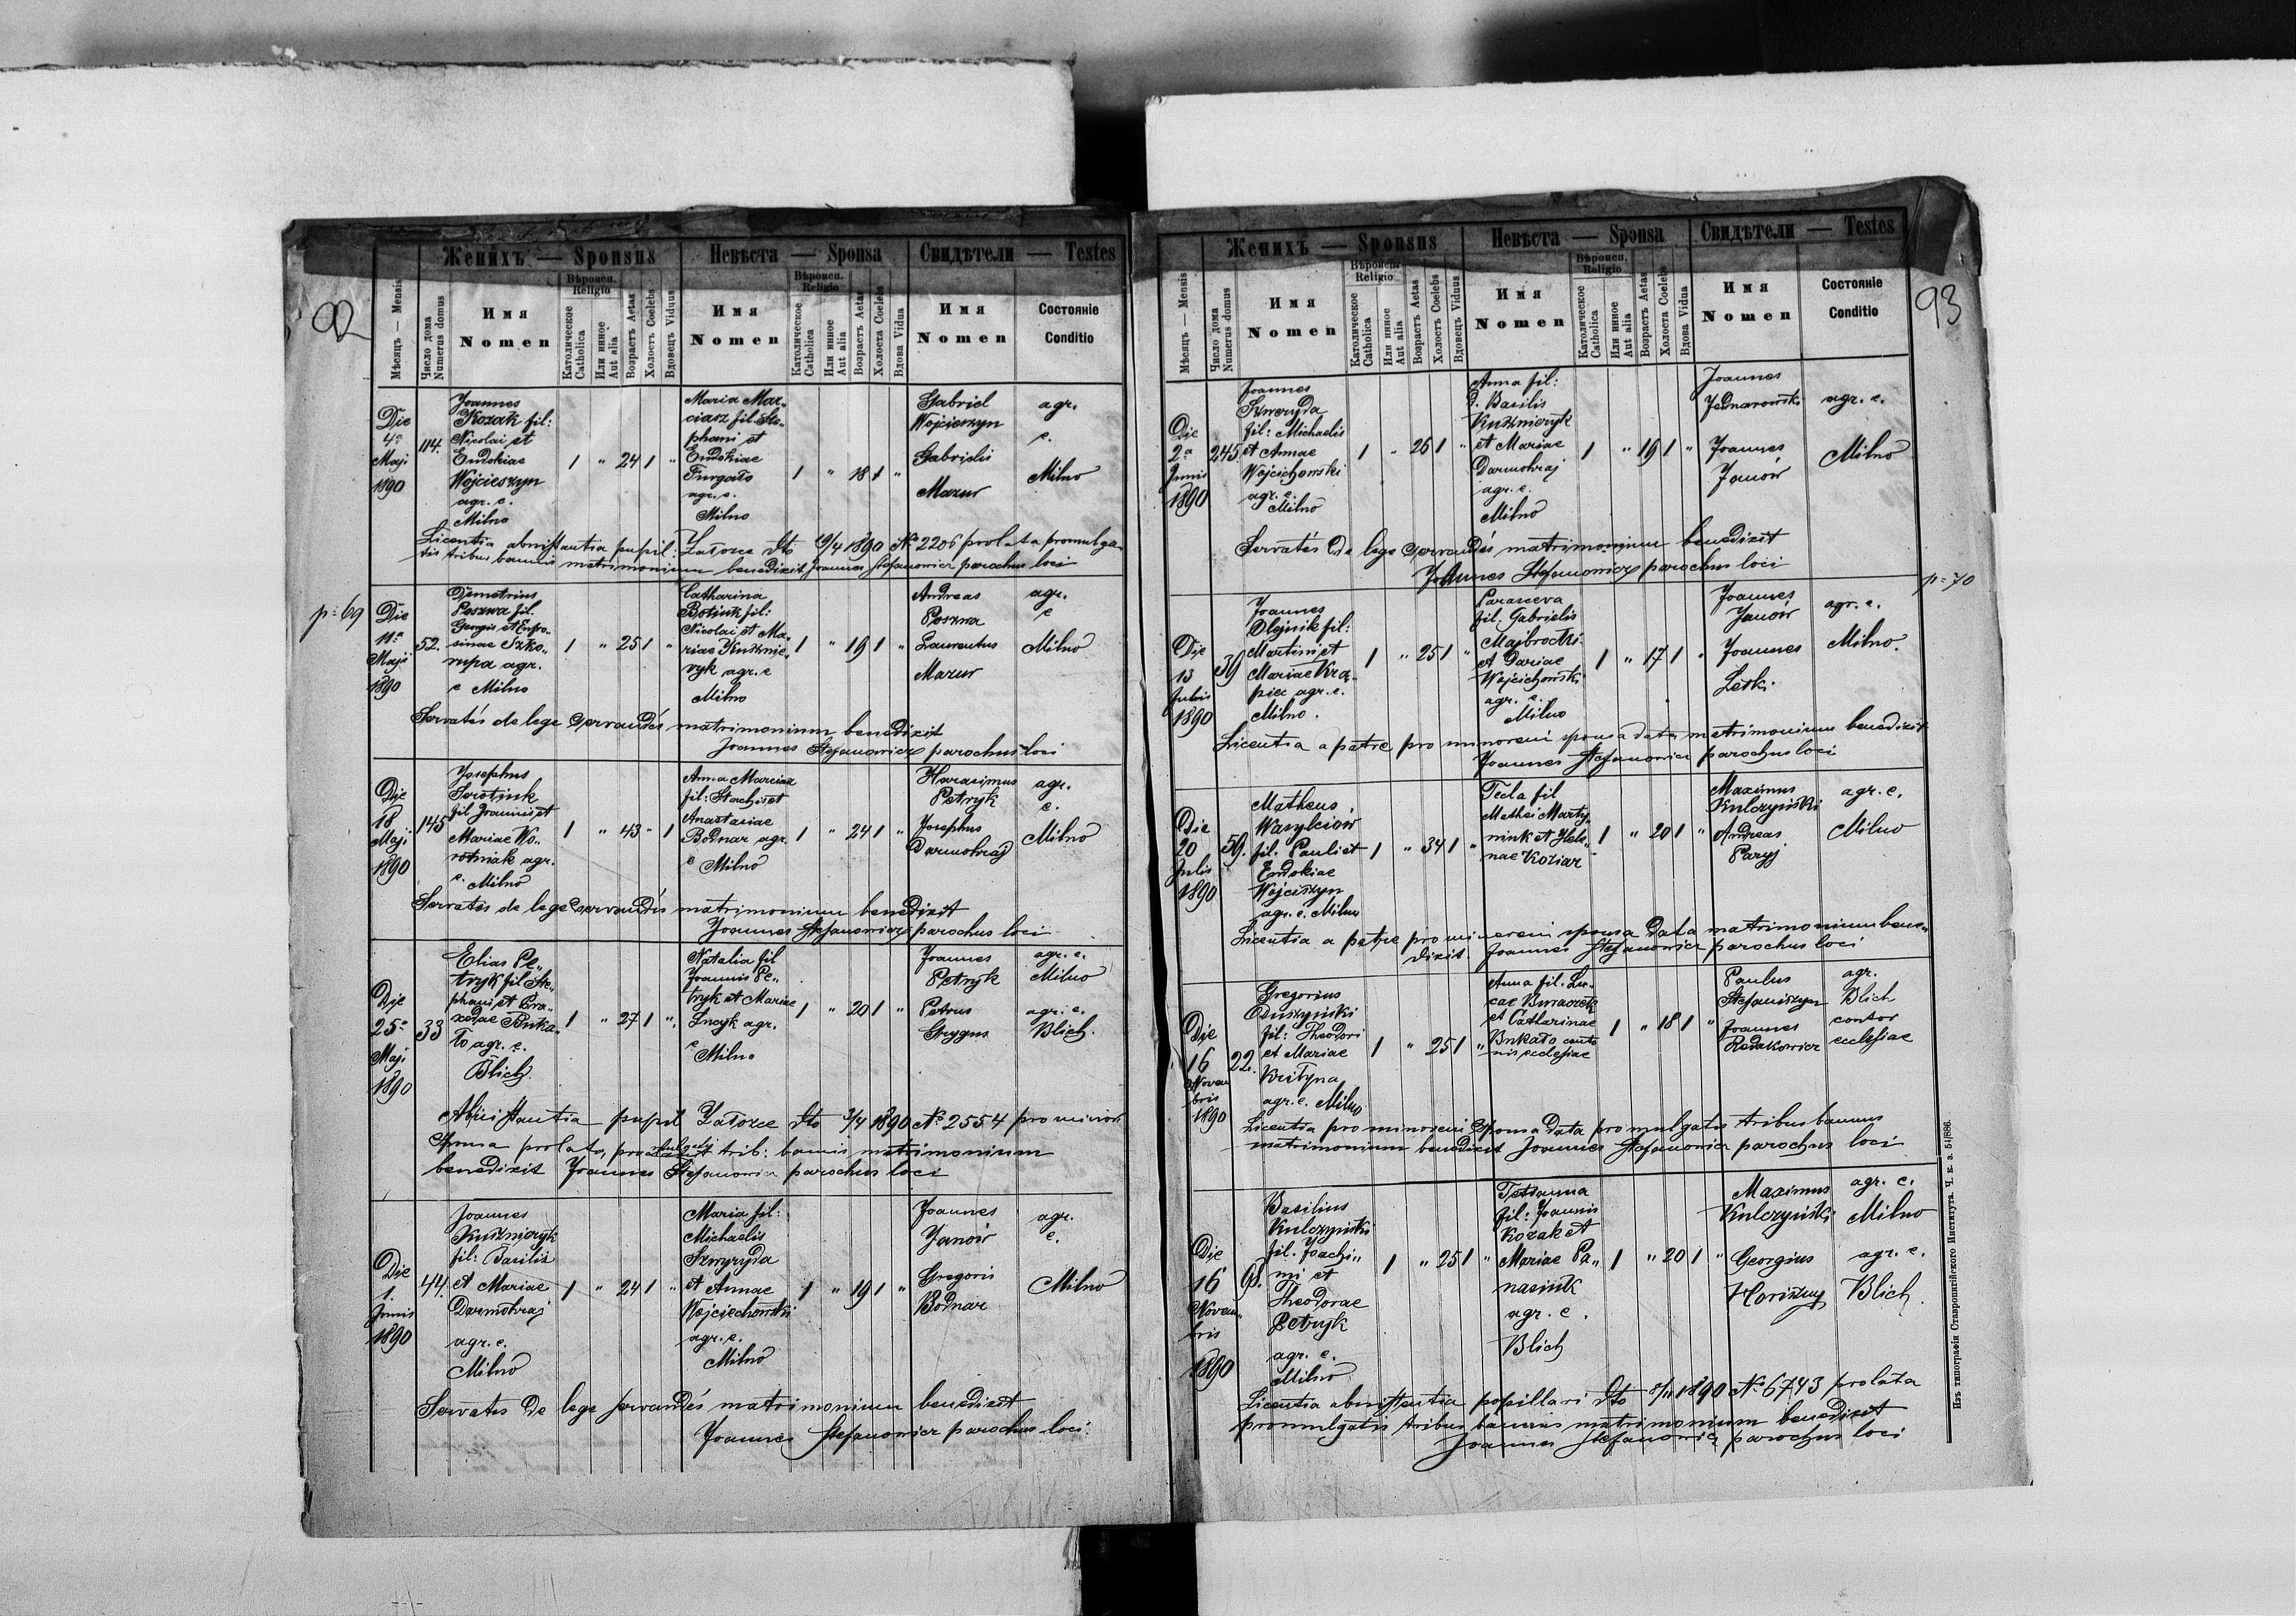 92
Женихъ — Sponsus
Невѣста — Sponsa
Свидѣтели — Testes
Мѣсяцъ — Mensis
Число дома
Numerus domus
Имя
Nomen
Вѣроисп.
Religio
Католическое
Catholica
Или инное
Aut alia
Возрастъ Aetas
Холостъ Coelebs
Вдовецъ Viduus
Имя
Nomen
Вѣроисп.
Religio
Католическое
Catholica
Или инное
Aut alia
Возрастъ Aetas
Холоста Coelebs
Вдова Vidua
Имя
Nomen
Состояніе
Conditio
Die
4a
Maji
1890
114.
Joannes
Kozak fil:
Nicolai et
Eudokiae
Wojcieszyn
agr. e.
Milno
1 " 24 1 "
Maria Mar„
ciasz fil. Ste„
phani et
Eudokiae
Furgało
agr. e.
Milno
1 " 18 1 "
Gabriel
Wojcieszyn
Gabrielis
Mazur
agr.
e.
Milno
Licentia abinstantia pupil: Załozce dto 19/4 1890 No 2206 prolata promulga„
tis tribus bannis matrimonium benedixit Joannes Stefanowicz parochus loci
p: 69
Die
11a
Maji
1890
52.
Demetrius
Poszwa fil.
Georgii et Eufro„
sinae Szko„
rupa agr.
e Milno
1 " 25 1 "
Catharina
Botiuk fil:
Nicolai et Ma„
riae Kusznie„
ryk agr. e
Milno
1 " 19 1 "
Andreas
Poszwa
Laurentus
Mazur
agr.
e
Milno
Servatis de lege servandis matrimonium benedixit
Joannes Stefanowicz parochus loci
Die
18
Maji
1890
145
Josephus
Sorotiuk
fil Joannis et
Mariae Wo„
rotniak agr.
e. Milno
1 " 43 " 1
Anna Marciasz
fil: Stachii et
Anastasiae
Bodnar agr.
e Milno
1 " 24 1 "
Harasimus
Petryk
Josephus
Darmohraj
agr.
e.
Milno
Servatis de lege servandis matrimonium benedixit
Joannes Stefanowicz parochus loci
Die
25a
Maji
1890
33
Elias Pe„
tryk fil Ste„
phani et Pra„
xedae Buka„
ło agr. e.
Blich.
1 " 27 1 "
Natalia fil
Joannis Pe„
tryk et Mariae
Lucyk agr.
e Milno
1 " 20 1 "
Joannes
Petryk
Petrus
Grygus
agr. e.
Milno
agr. e.
Blich.
Abinstantia pupil Załozce dto 3/4 1890 No 2554 pro minor.
sponsa prolata, trib: bannis matrimonium
benedixit Joannes Stefanowicz parochus loci
Die
1.
Junii
1890
44.
Joannes
Kuszнieryk
fil: Basilii
et Mariae
Darmohraj
agr. e.
Milno
1 " 24 1 "
Maria fil:
Michaelis
Szwyryda
et Annae
Wojciechowski
agr. e.
Milno
1 " 19 1 "
Joannes
Janoir
Gregoris
Bodnar
agr.
e.
Milno
Servatis de lege servandis matrimonium benedixit
Joannes Stefanowicz parochus loci.
93
Женихъ — Sponsus
Невѣста — Sponsa
Свидѣтели — Testes
Мѣсяцъ — Mensis
Число дома
Numerus domus
Имя
Nomen
Вѣроисп.
Religio
Католическое
Catholica
Или инное
Aut alia
Возрастъ Aetas
Холостъ Coelebs
Вдовецъ Viduus
Имя
Nomen
Вѣроисп.
Religio
Католическое
Catholica
Или инное
Aut alia
Возрастъ Aetas
Холоста Coelebs
Вдова Vidua
Имя
Nomen
Состояніе
Conditio
Die
2a
Junii
1890
245
Joannes
Szweryda
fil: Michaelis
et Annae
Wojciechowski
agr. e.
Milno
1 " 26 1 "
Anna fil:
d. Basilis
Kusznieryk
et Mariae
Darmohraj
agr. e.
Milno
1 " 19 1 "
Joannes
Jednarowski
Joannes
Janów
agr. e.
Milno
Servatis de lege servandis matrimonium benedixit
Joannes Stefanowicz parochus loci
p: 70
Die
13
Julii
1890
39
Joannes
Olejnik fil:
Martini et
Mariae Kra„
piec agr. e.
Milno.
1 " 25 1 "
Parasceva
fil. Gabrielis
Majbrocki
et Dariae
Wojciechowski
agr. e.
Milno
1 " 17 1 "
Joannes
Janów
Joannes
Letki
agr. e.
Milno.
Licentia a patre pro minoreni sponsa data matrimonium benedixit
Joannes Stefanowicz parochus loci
Die
20
Julii
1890
59.
Matheus
Wasylciow
fil. Pauli et
Eudokiae
Wojciszyn
agr. e. Milno
1 " 34 1 "
Tecla fil
Mathei Marty„
niuk et Hele„
nae Koziar
1 " 20 1 "
Maximus
Kulczyński
Andreas
Paryj
agr. e.
Milno
Licentia a patre pro minoreni sponsa data matrimonium bene„
dixit Joannes Stefanowicz parochus loci
Die
16
Novem
bris
1890
22.
Gregorius
Oduszyński
fil: Theodori
et Mariae
Krityna
agr. e. Milno
1 " 25 1 "
Anna fil. Lu„
cae Buraczek
et Catharinae
Bukało canto
nis ecclesiae
1 " 18 1 "
Paulus
Stefaniszyn
Joannes
Redakowicz
agr.
Blich
cantor
ecclesiae
Licentia pro minoreni sponsa data promulgatis tribus bannis
matrimonium benedixit Joannes Stefanowicz parochus loci
Die
16
Novem„
bris
1890
98.
Basilius
Kulczyński
fil. Joachi„
mi et
Theodorae
Petryk
agr. e.
Milno
1 " 25 1 "
Tetianna
fil: Joannis
Kozak et
Mariae Pa„
nasiuk
agr. e.
Blich
1 " 20 1 "
Maximus
Kulczyński
Georgius
Horiszny
agr. e.
Milno
agr. e.
Blich
Licentia abinstantia pupillari dto 8/11 1890 No 6743 prolata
promulgatis tribus bannis matrimonium benedixit
Joannes Stefanowicz parochus loci
Изъ типографіи Ставропигійского Института. Ч. к. з. 54/886.